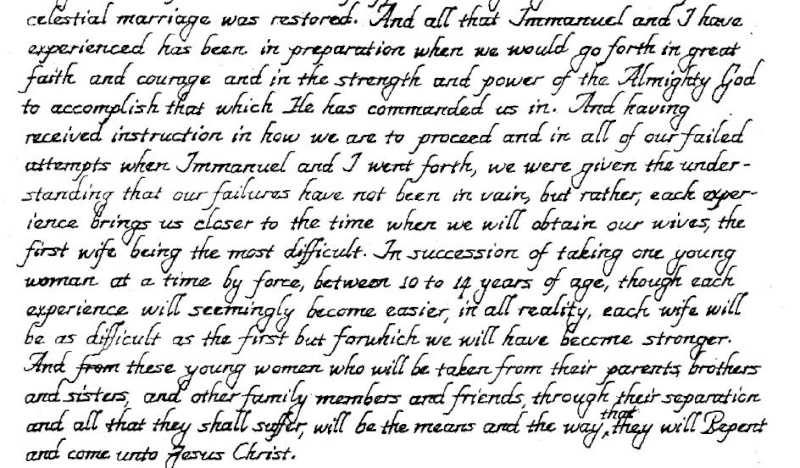 celestial marriage was restored. And all that Immanuel and I have
experienced has been in preparation when we would go forth in great
faith and courage and in the strength and power of the Almighty God
to accomplish that which He has commanded us in. And having
received instruction in how we are to proceed and in all of our failed
attempts when Immanuel and I went forth, we were given the under-
standing that our failures have not been in vain, but rather, each exper-
ience brings us closer to the time when we will obtain our wives, the
first wife being the most difficult. In succession of taking one young
woman at a time by force, between 10 to 14 years of age, though each
experience will seemingly become easier, in all reality, each wife will
be as difficult as the first but forwhich we will have become stronger.
And from these young women who will be taken from their parents, brothers
and sisters, and other family members and friends, through their separation
and all that they shall suffer, will be the means and the way, that they will Repent
and come unto Jesus Christ.